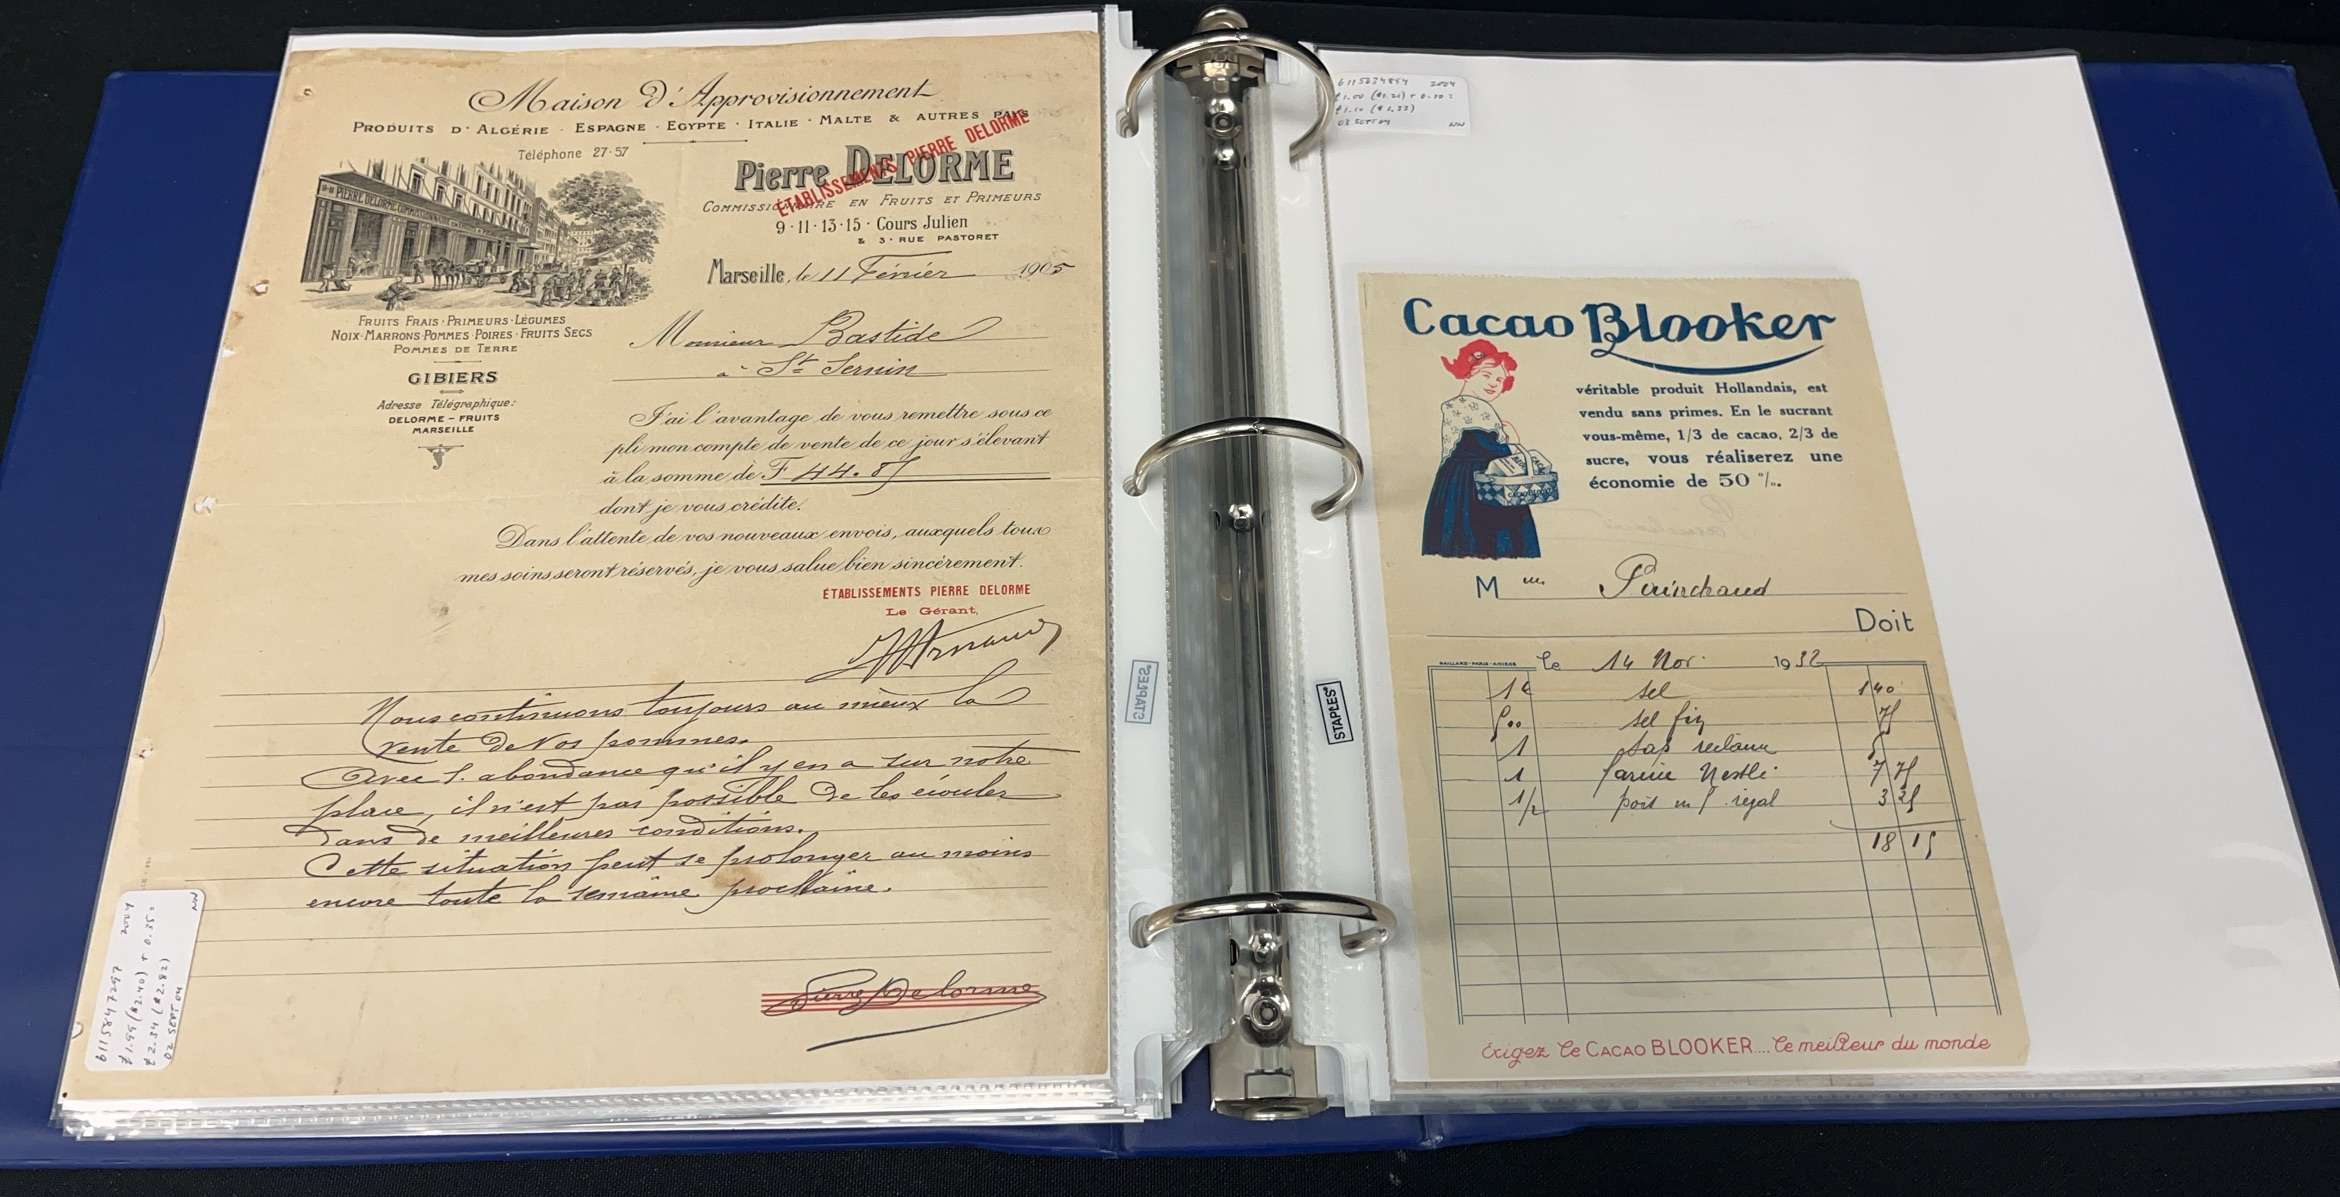 Maison D'Approvisionnement
PRODUITS D'ALGÉRIE · ESPAGNE · EGYPTE · ITALIE · MALTE & AUTRES PAYS
Téléphone 27·57
PIERRE DELORME COMMISSIONNAIRE
Pierre DELORME
ÉTABLISSEMENTS PIERRE DELORME
COMMISSIONNAIRE EN FRUITS ET PRIMEURS
9·11·13·15· Cours Julien
& 3· RUE PASTORET
Marseille, le 11 Février 1905
FRUITS FRAIS · PRIMEURS · LÉGUMES
NOIX · MARRONS · POMMES · POIRES · FRUITS SECS
POMMES DE TERRE
GIBIERS
Adresse Télégraphique:
DELORME - FRUITS
MARSEILLE
Monsieur Bastide
à St Sernin
J'ai l'avantage de vous remettre sous ce
pli mon compte de vente de ce jour s'élevant
à la somme de F 44.85
dont je vous crédite.
Dans l'attente de vos nouveaux envois, auxquels tous
mes soins seront réservés, je vous salue bien sincèrement.
ÉTABLISSEMENTS PIERRE DELORME
Le Gérant,
Nous continuons toujours au mieux la
vente de vos pommes.
Avec l'abondance qu'il y en a sur notre
place, il n'est pas possible de les écouler
dans de meilleures conditions.
Cette situation peut se prolonger au moins
encore toute la semaine prochaine.
Pierre Delorme
6115847297 2004
£1.99 ($2.40) + 0.35 =
£2.34 ($2.82)
02 SEPT 04 NN
STAPLES
STAPLES
6115034854 2004
£1.00 ($1.20) + 0.10 =
£1.10 ($1.33)
02 SEPT 04 NN
Cacao Blooker
véritable produit Hollandais, est
vendu sans primes. En le sucrant
vous-même, 1/3 de cacao, 2/3 de
sucre, vous réaliserez une
économie de 50 %.
M me Painchaud
Doit
GAILLARD · PARIS · AMIENS
le 14 Nov. 1932
sel 1 40
500 sel fin 75
1
1 farine Nestlé 7 75
1/2 3 25
18 15
Exigez le CACAO BLOOKER.... le meilleur du monde